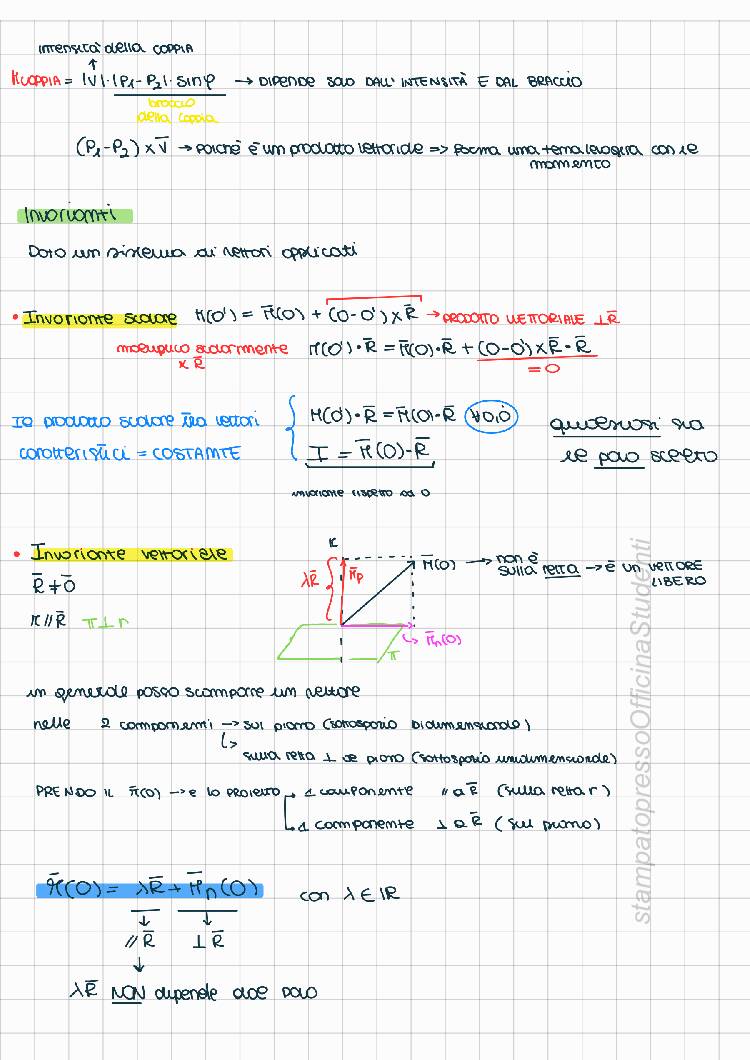 intensità della COPPIA
↑
M COPPIA = |V|·|P₁-P₂|·sinφ → DIPENDE SOLO DALL'INTENSITÀ E DAL BRACCIO
braccio
della coppia
(P₁-P₂) × V̄ → poiché è un prodotto vettoriale => forma una terna levogira con il
momento
Invarianti
Dato un sistema di vettori applicati
• Invariante scalare M(O') = M̄(O) + (O-O') × R̄ → PRODOTTO VETTORIALE ⊥R̄
moltiplico scalarmente M(O')·R̄ = M̄(O)·R̄ + (O-O') × R̄·R̄
× R̄ = 0
Il prodotto scalare tra vettori M(O')·R̄ = M̄(O)·R̄ ∀O,O' qualsiasi sia
caratteristici = COSTANTE I = M̄(O)·R̄ il polo scelto
invariante rispetto ad O
• Invariante vettoriale
R̄ ≠ 0̄
r // R̄ π ⊥ r
r
λR̄ M̄p M̄(O) → non è
sulla retta → è un VETTORE
LIBERO
M̄n(O)
π
in generale posso scomporre un vettore
nelle 2 componenti → sul piano (sottospazio bidimensionale)
↳ sulla retta ⊥ al piano (sottospazio unidimensionale)
PRENDO IL M̄(O) → e lo proietto 1 componente // a R̄ (sulla retta r)
1 componente ⊥ a R̄ (sul piano)
M̄(O) = λR̄ + M̄n(O) con λ ∈ ℝ
↓ ↓
// R̄ ⊥ R̄
↓
λR̄ NON dipende dal polo
stampatopressoOfficinaStudenti